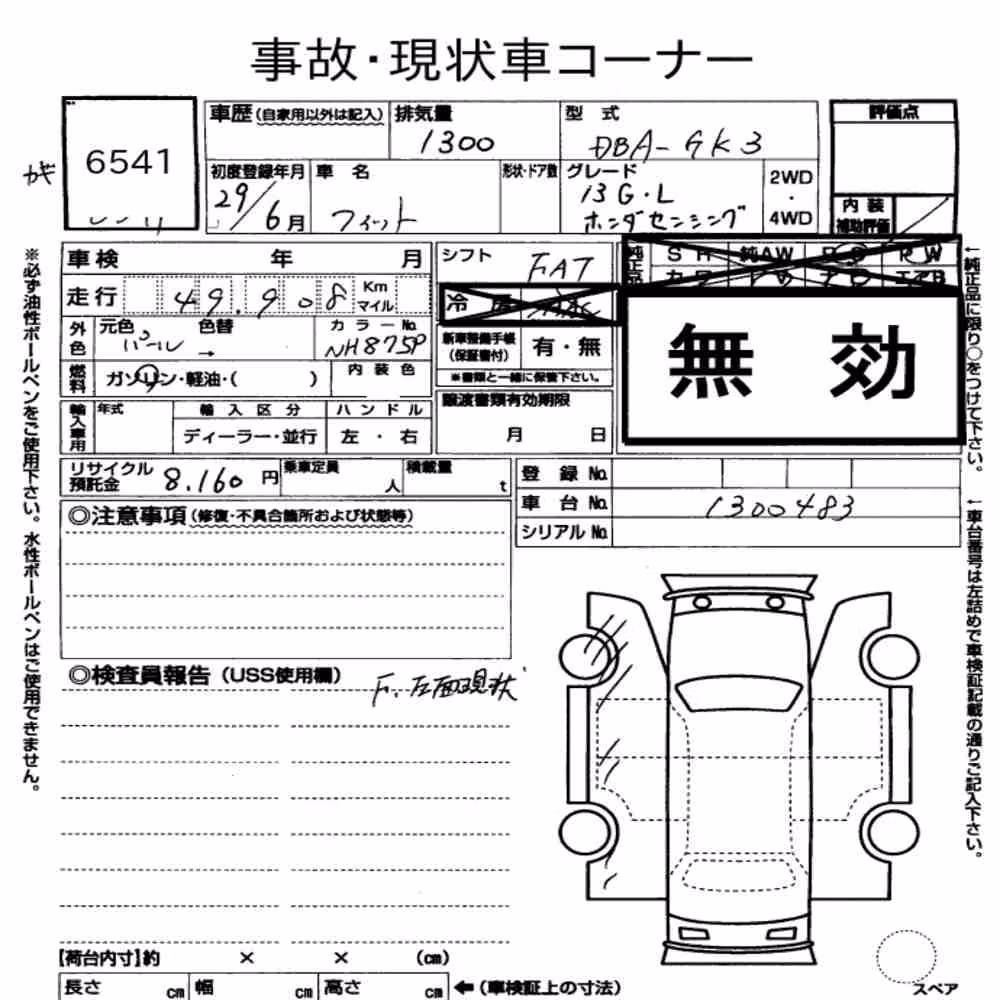 事故・現状車コーナー
6541
車歴 (自家用以外は記入)
排気量
1300
型式
DBA-GK3
評価点
初度登録年月
29/6月
車名
フィット
形状・ドア数
グレード
13G・L
ホンダセンシング
2WD
・
4WD
内装
補助評価
車検 年 月
走行 49.908 Km
マイル
外色
元色 パール
色替 →
カラーNo.
NH875P
燃料
ガソリン・軽油・( )
内装色
輸入車用
年式
輸入区分
ディーラー・並行
ハンドル
左・右
シフト
FAT
冷房
新車整備手帳
(保証書付)
有・無
※書類と一緒に保管下さい。
譲渡書類有効期限
月 日
純正品
SR 純AW
エアB
無効
リサイクル
預託金
8.160円
乗車定員
人
積載量
t
登録No.
車台No.
1300483
シリアルNo.
◎注意事項 (修復・不具合箇所および状態等)
◎検査員報告 (USS使用欄)
F、左面現状
【荷台内寸】約 × × (cm)
長さ cm
幅 cm
高さ cm
← (車検証上の寸法)
スペア
※必ず油性ボールペンをご使用下さい。水性ボールペンはご使用できません。
←純正品に限り○をつけて下さい。
←車台番号は左詰めで車検証記載の通りご記入下さい。